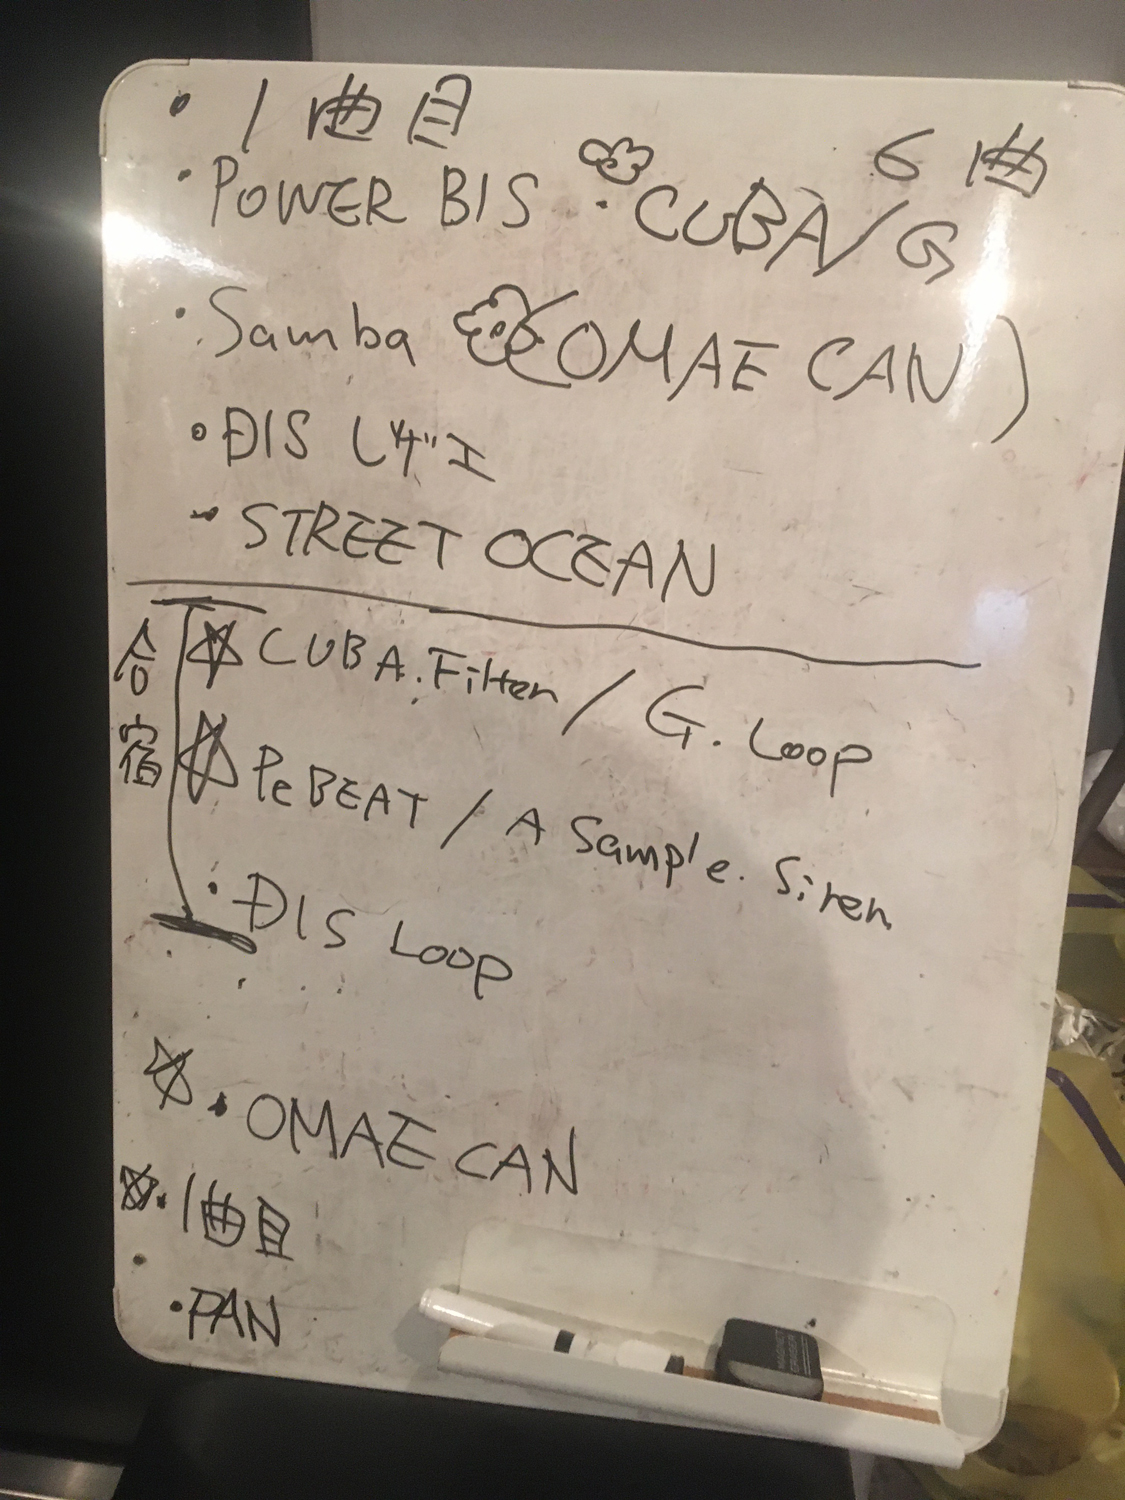 ・1曲目
6曲
・POWER BIS ・CUBA/G
・Samba (OMAE CAN)
・DIS レゲエ
・STREET OCEAN
合宿
☆ CUBA.Filter / G. Loop
☆ PeBEAT / A Sample. Siren
・DIS Loop
☆・OMAE CAN
☆・1曲目
・PAN
MAGNET ERASER